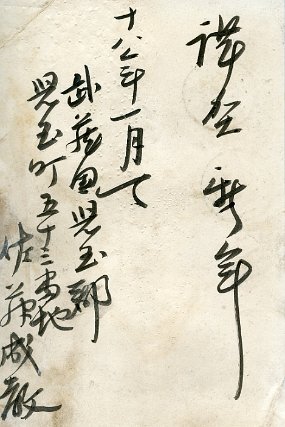 謹賀新年
十八年一月一
武蔵国児玉郡
児玉町五十三番地
佐藤成教